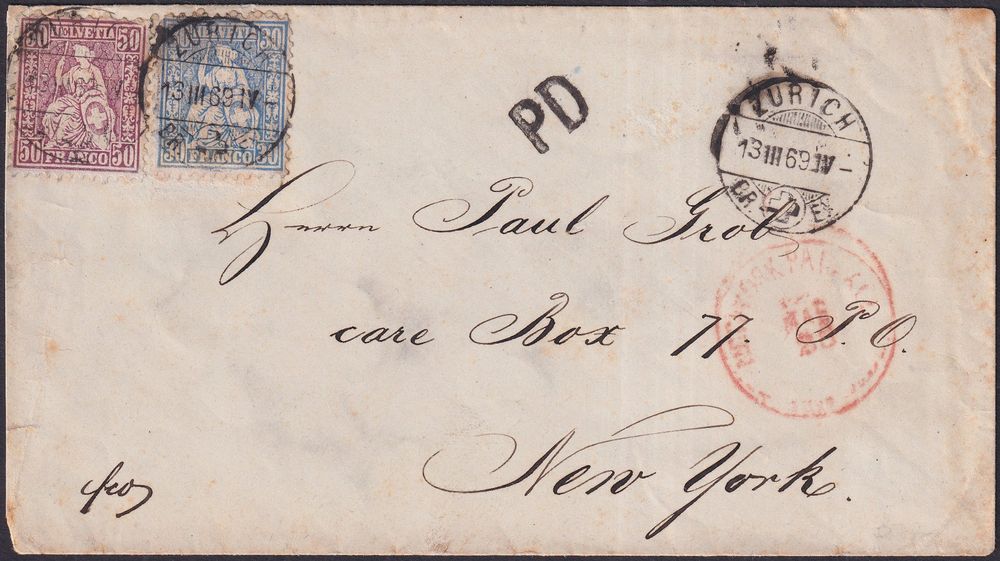 50 HELVETIA 50
50 FRANCO 50
30 30
30 FRANCO 30
ZURICH
13 III 69 IV
PD
ZÜRICH
13 III 69 IV
Herrn Paul Grob
care Box 77. P.O.
New York.
NEW YORK PAID ALL
MAR
fco